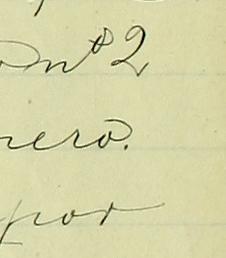 nº 2
nero.
por